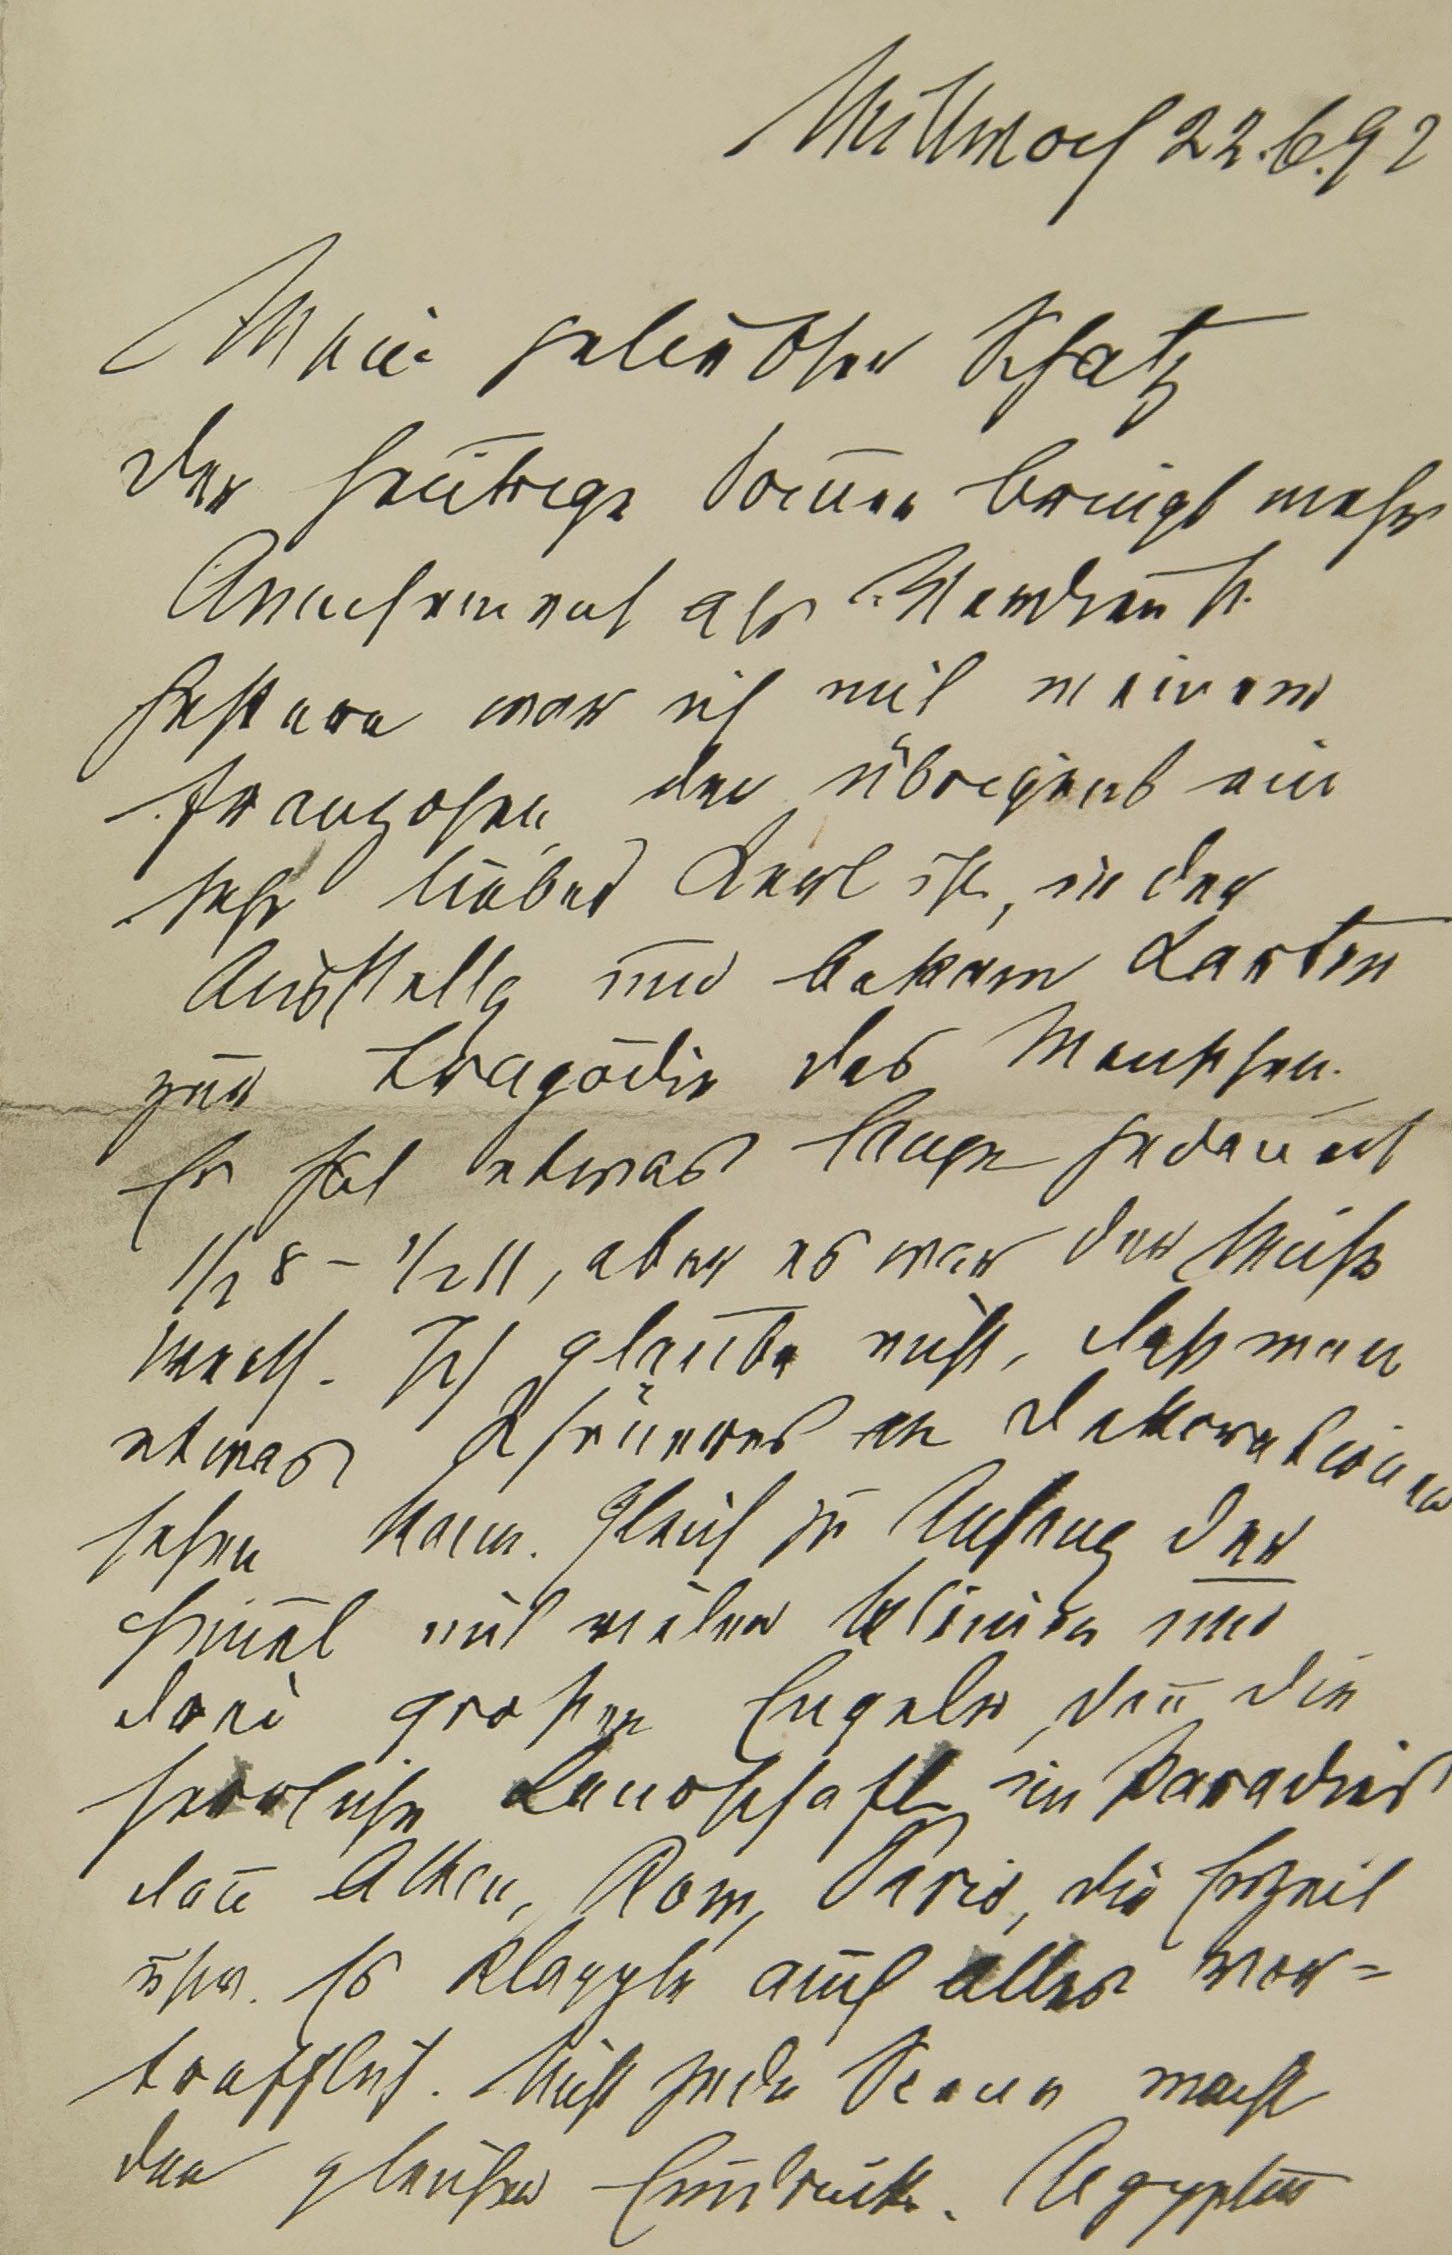 Mittwoch 22.6.92
Mein geliebter Schatz
Der heutige Sommer bringt mehr
Amusement als Verdienst.
Gestern war ich mit meinem
Franzosen, der übrigens ein
sehr lieber Kerl ist, in der
Ausstellg und bekam Karten
zur Tragödie des Menschen.
Es hat etwas lange gedauert
1/2 8 – 1/2 11, aber es war der Mühe
wert. Ich glaube nicht, dass man
etwas Schöneres an Dekorationen
sehen kann. Gleich zu Anfang der
Himel mit vielen kleinen und
drei grossen Engeln, dan̄ die
herrliche Landschaft im Paradies
dan̄ Athen, Rom, Paris, die Eiszeit
usw. Es klappte auch alles vor=
trefflich. Nicht jede Scene macht
den gleichen Eindruck. Aegypten